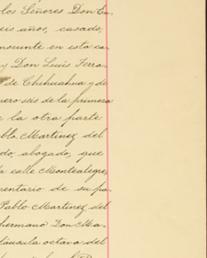 los Señores Don En
seis años, casado,
morante en esta ca
y Don Luis Terra
" de Chihuahua y de
mero seis de la primera
e la otra parte
ablo Martinez del
do, abogado, que
la calle Montealegre,
mentario de su pa
Pablo Martinez del
hermano Don
láusula octava del